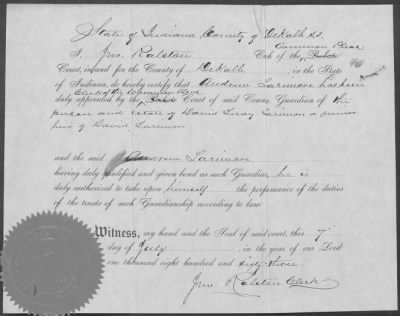 State of Indiana County of DeKalb ss.
Common Pleas
I, Jno. Ralston Clk of the Probate
Court, in and for the County of DeKalb in the State
of Indiana, do hereby certify that Andrew Larimore has been
Clerk of the Common Pleas
duly appointed by the Court of said County Guardian of the
person and estate of David Leroy Larimore a minor
heir of David Larimore
and the said Andrew Larimore
having duly qualified and given bond as such Guardian, he is
duly authorized to take upon himself the performance of the duties
of the trusts of such Guardianship according to law.
Witness, my hand and the Seal of said court, this 7"
day of July, in the year of our Lord
one thousand eight hundred and sixty three.
Jno. Ralston Clerk